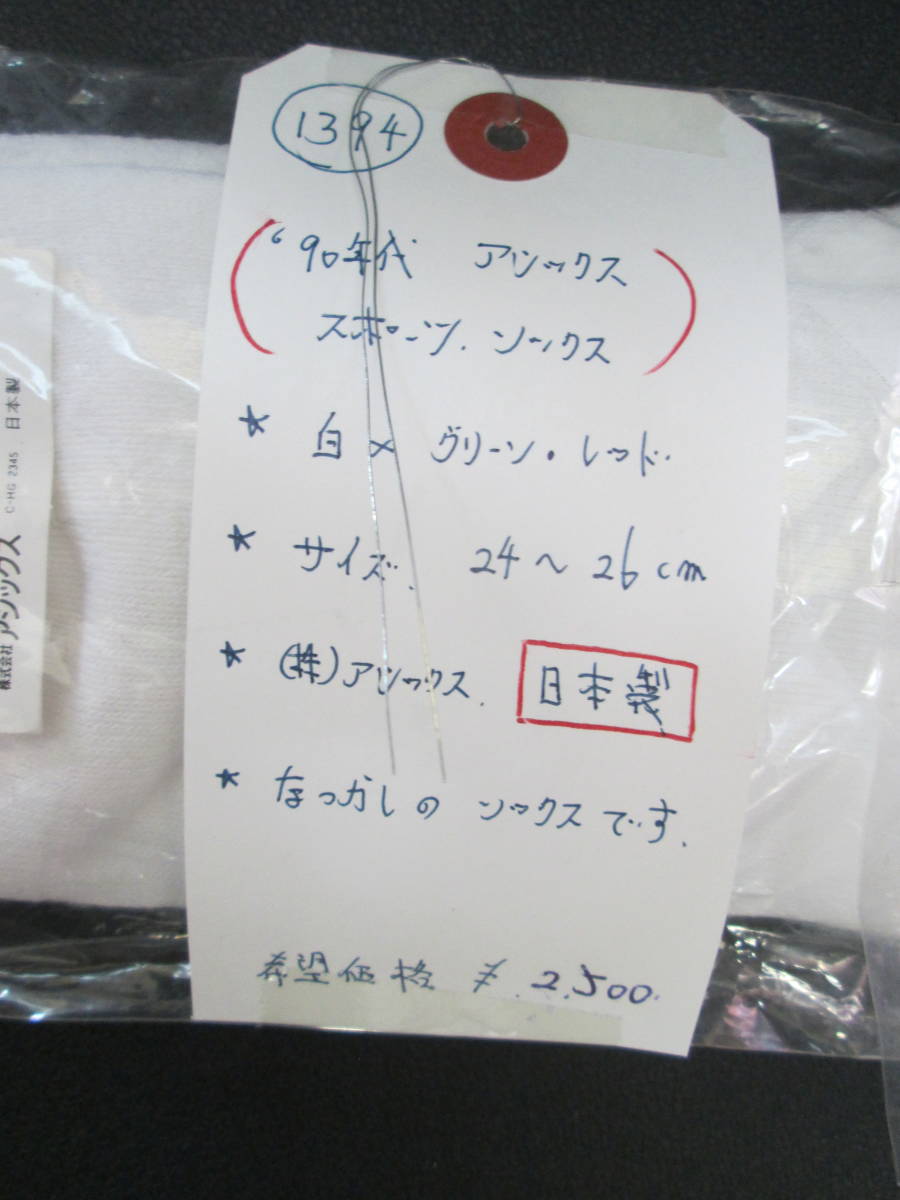 1394
'90年代 アシックス
スポーツ.ソックス
★ 白× グリーン・レッド.
★ サイズ. 24～26cm
★ (株)アシックス. 日本製
★ なつかしの ソックスです.
希望価格 ¥.2,500.
株式会社 アシックス C-HG 2345 日本製